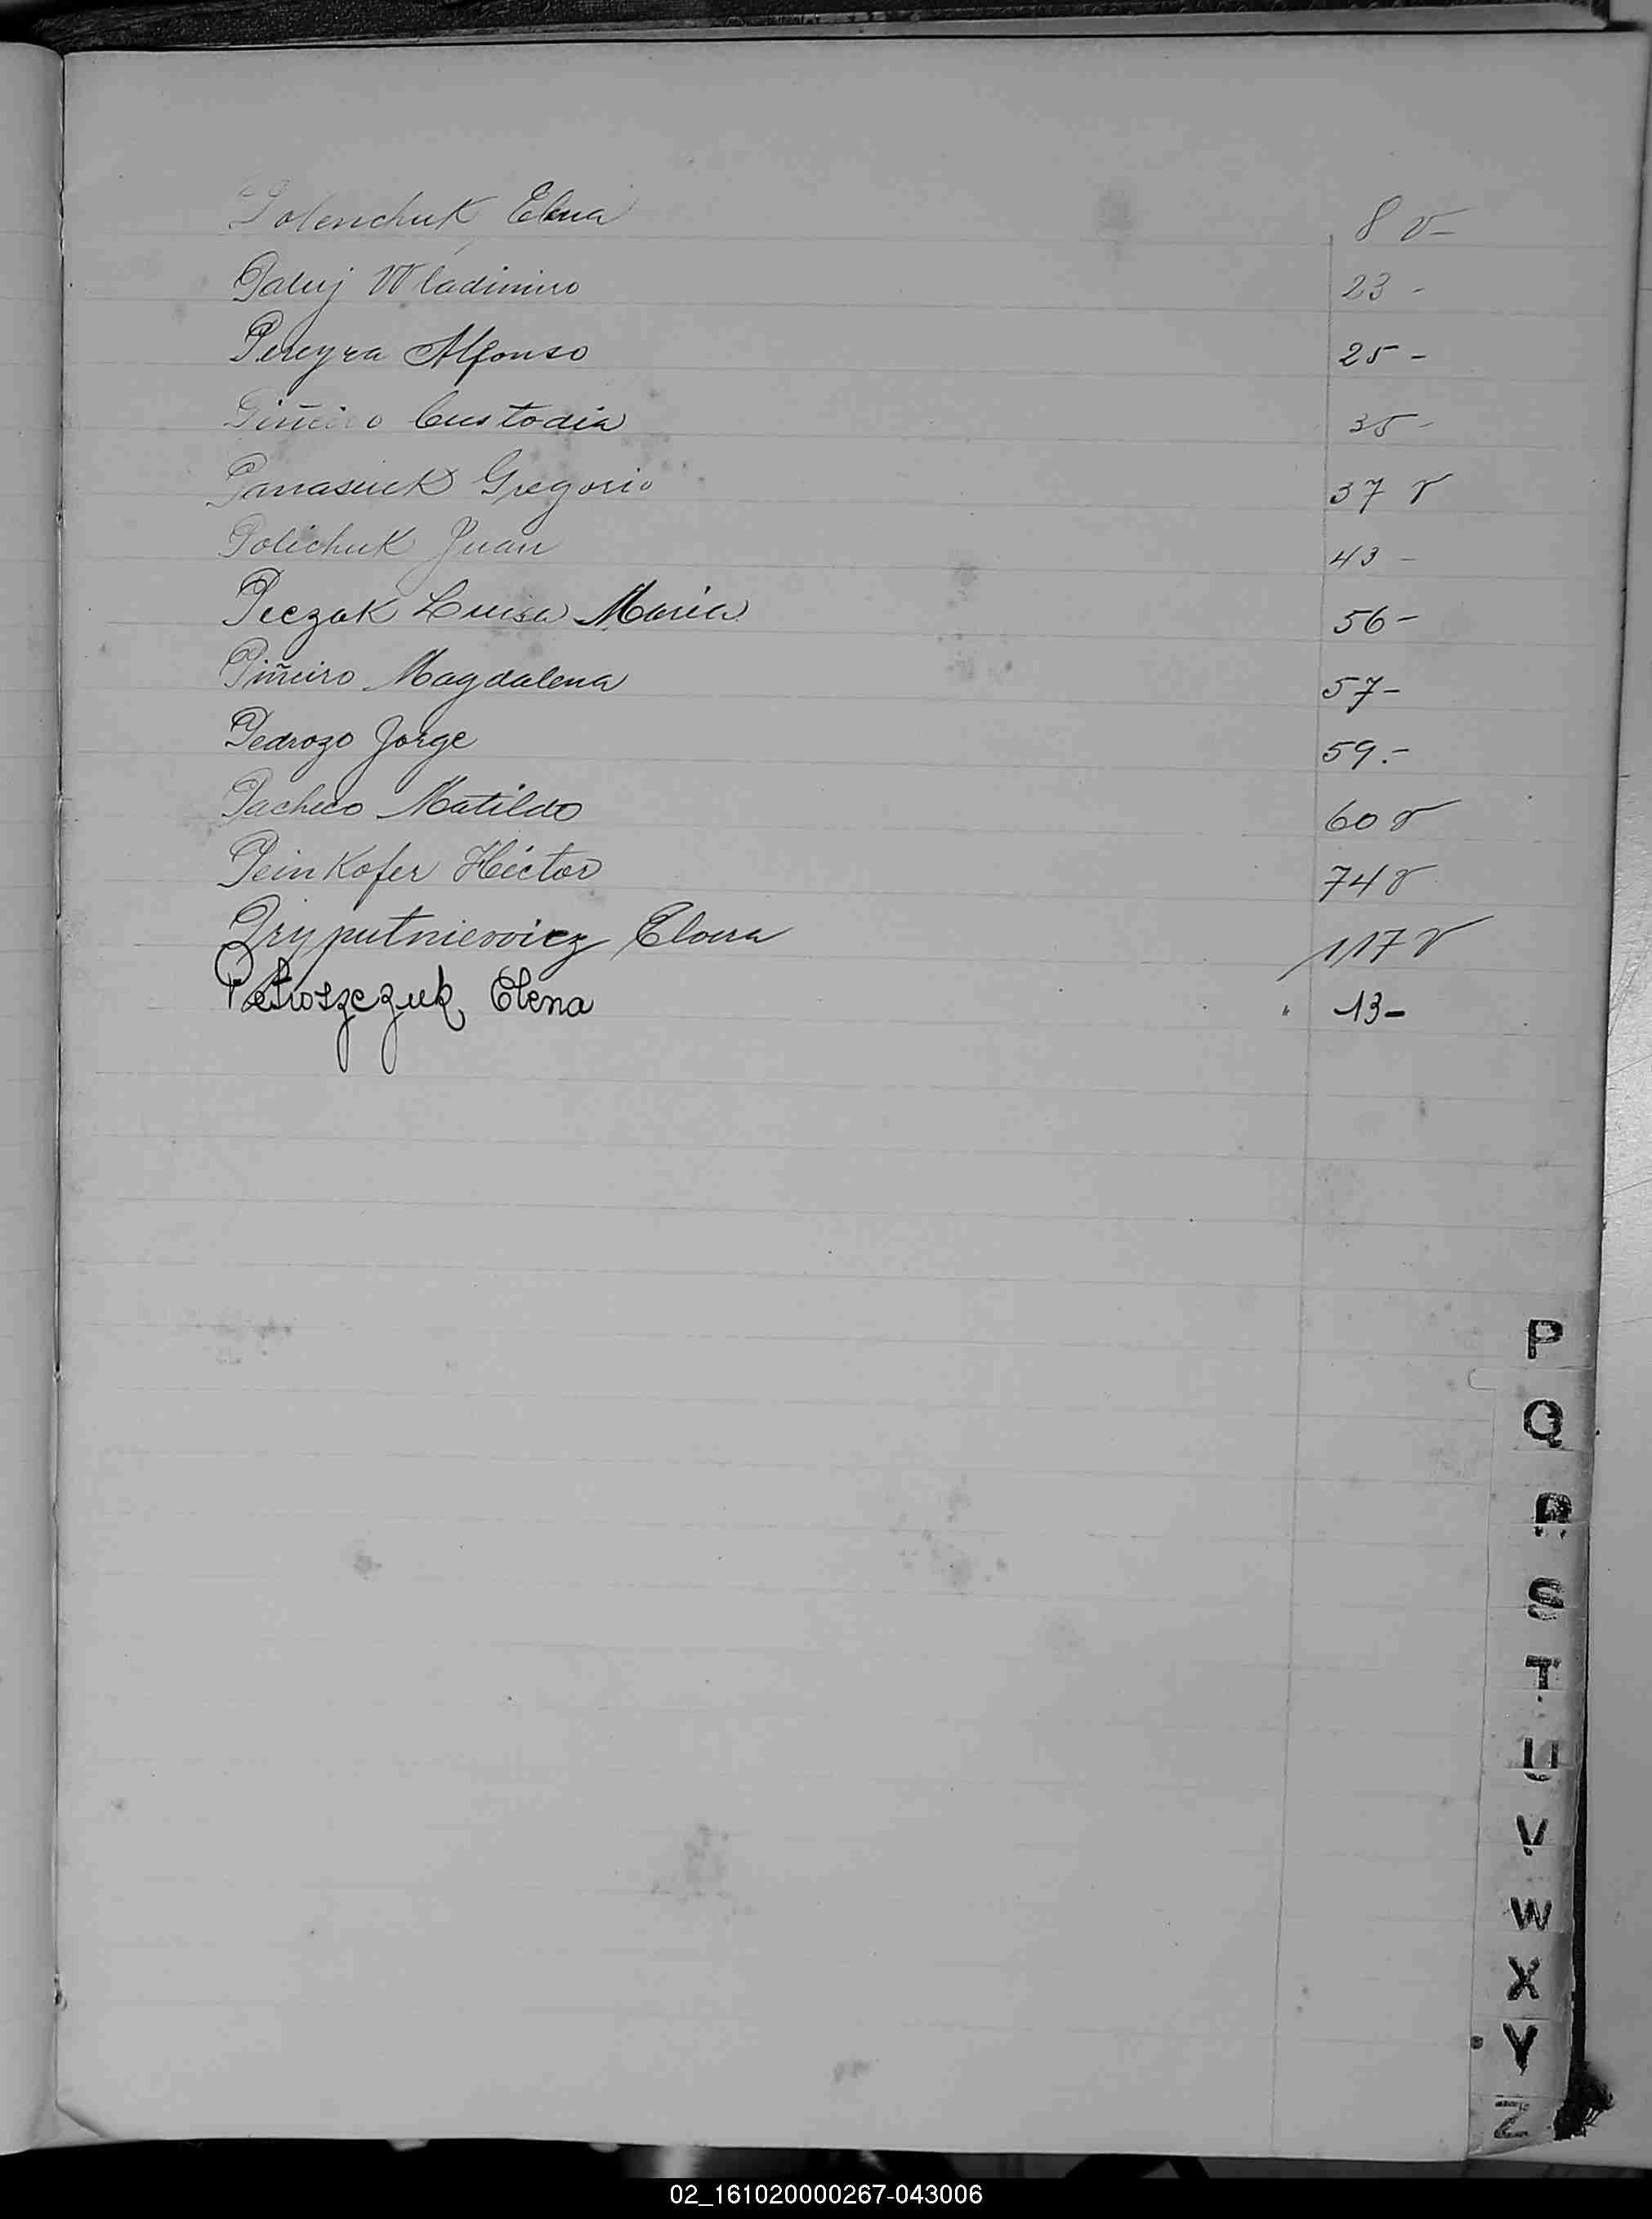 Polenchuk Elena 8 v-
Paluj Wladimiro 23 -
Pereyra Alfonso 25 -
Piñeiro Custodia 35 -
Panasiuk Gregorio 37 v
Polichuk Juan 43 -
Peczak Luisa Maria 56 -
Piñeiro Magdalena 57 -
Pedrozo Jorge 59.-
Pacheco Matilde 60 v
Peinkofer Héctor 74 v
Pryputniewicz Elvira 117 v
Petroszczuk Elena " 13-
P
Q
R
S
T
U
V
W
X
Y
Z
02_161020000267-043006